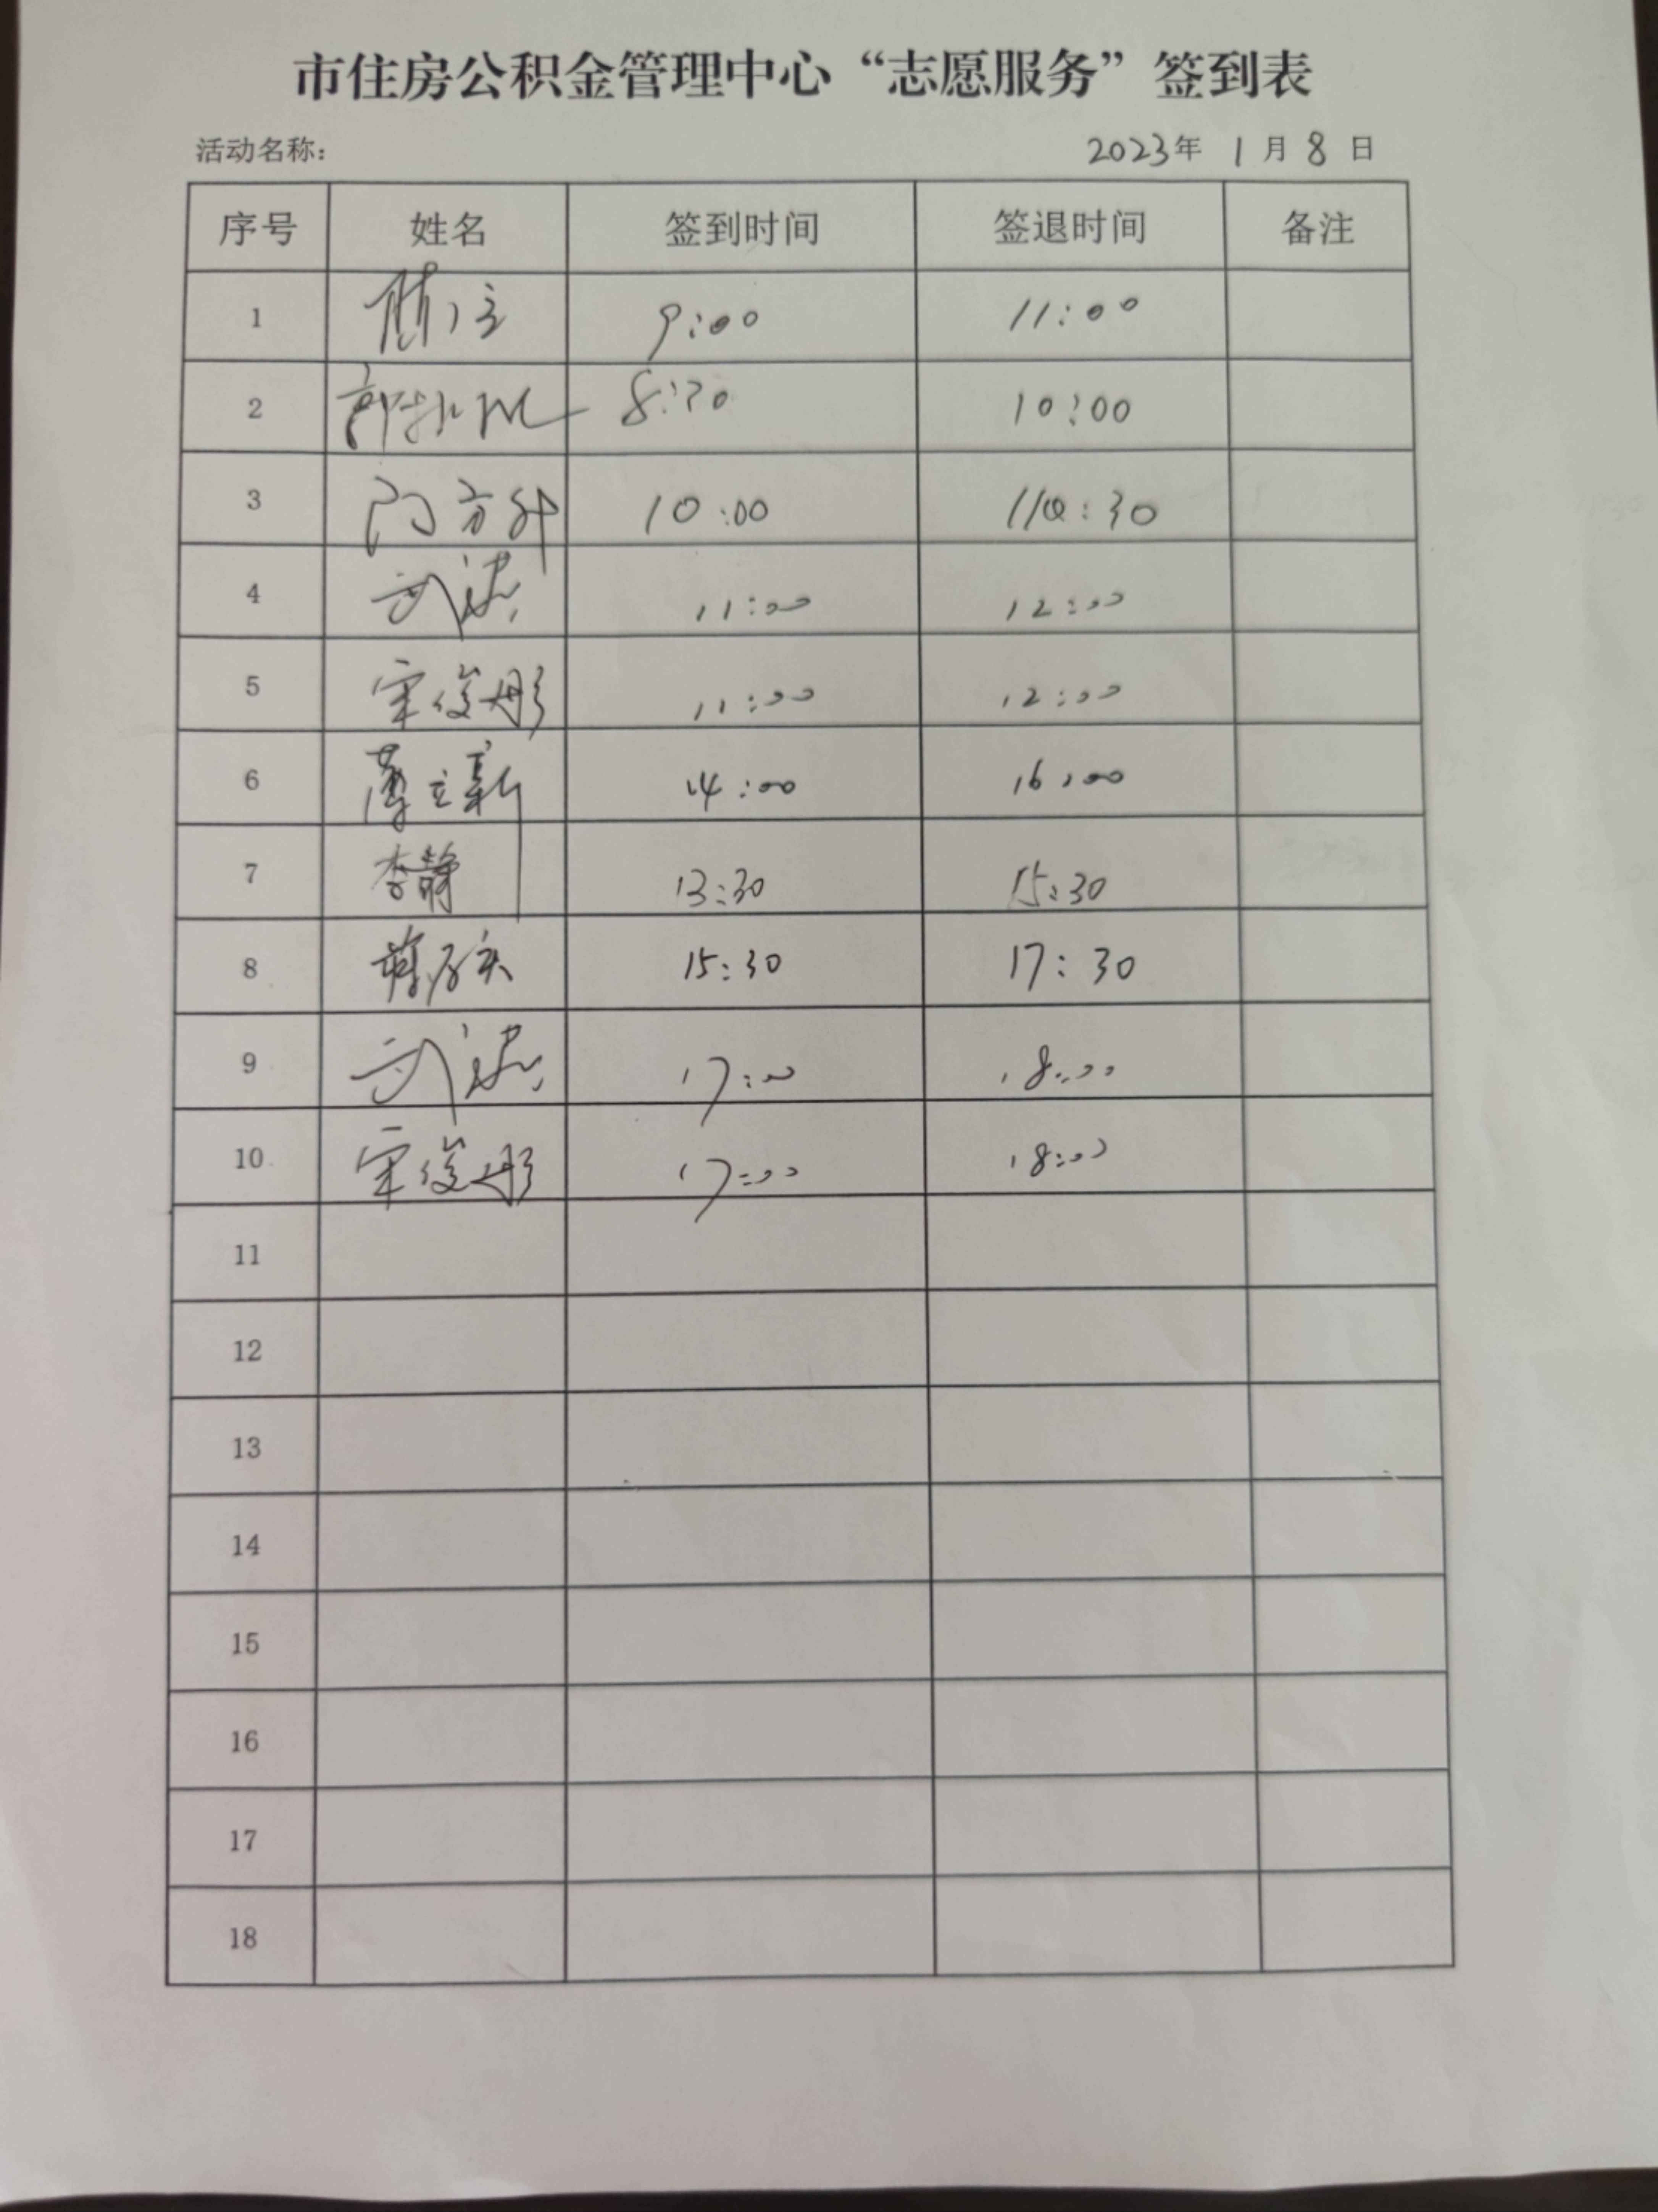 市住房公积金管理中心“志愿服务”签到表
活动名称： 2023年 1月8日
序号 姓名 签到时间 签退时间 备注
1 9:00 11:00
2 8:30 10:00
3 10:00 :30
4 11:00 12:00
5 宋俊彤 11:00 12:00
6 立新 14:00 16:00
7 李静 13:30 15:30
8 15:30 17:30
9 17:00 18:00
10 宋俊彤 17:00 18:00
11
12
13
14
15
16
17
18